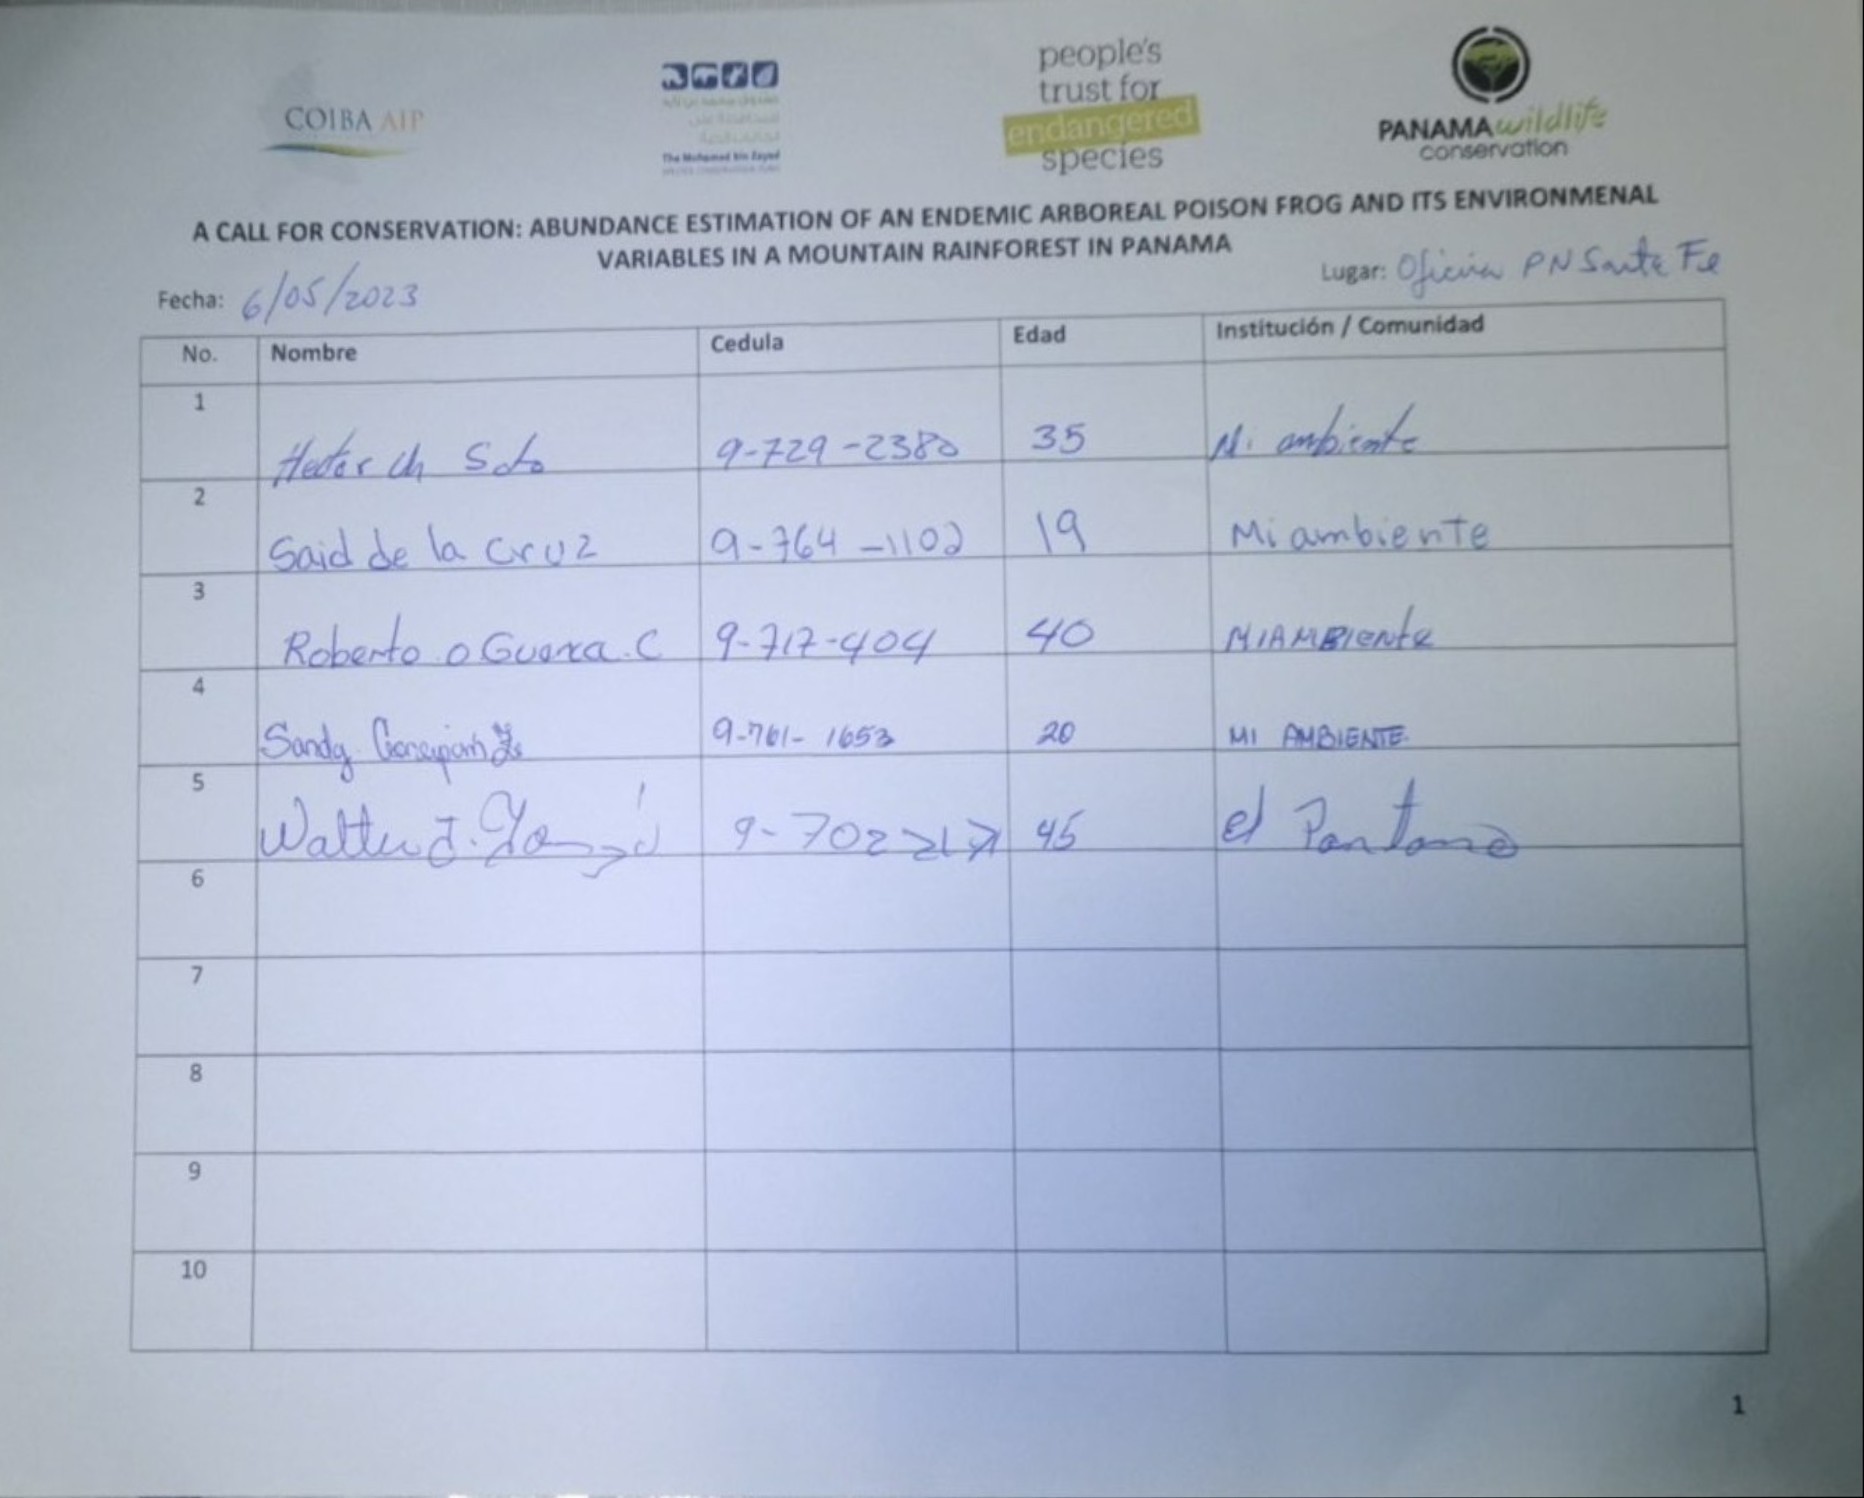 COIBA AIP
The Mohamed bin Zayed
SPECIES CONSERVATION FUND
people's
trust for
endangered
species
PANAMA wildlife
conservation
A CALL FOR CONSERVATION: ABUNDANCE ESTIMATION OF AN ENDEMIC ARBOREAL POISON FROG AND ITS ENVIRONMENAL
VARIABLES IN A MOUNTAIN RAINFOREST IN PANAMA
Fecha: 6/05/2023 Lugar: Oficina PN Santa Fe
No. Nombre Cedula Edad Institución / Comunidad
1 Hector Ch Soto 9-729-2380 35 Mi ambiente
2 Said de la Cruz 9-764-1102 19 Mi ambiente
3 Roberto O Guerra C 9-717-404 40 MIAMBIENTE
4 Sandy 9-761-1653 20 MI AMBIENTE
5 Walter J. 9-702 45 el Pantano
6
7
8
9
10
1